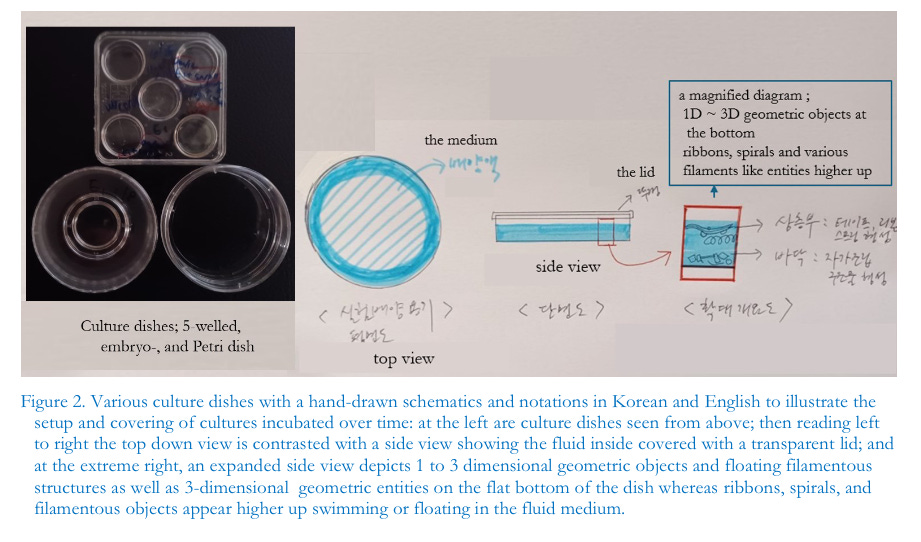 a magnified diagram ;
1D ~ 3D geometric objects at
the bottom
ribbons, spirals and various
filaments like entities higher up
the medium
배양액
the lid
뚜껑
상층부 : 테이프, 리본
스프링 형성
바닥 : 자가조립
구조물 형성
side view
< 실험배양 용기
평면도 >
< 단면도 >
< 확대 개요도 >
top view
Culture dishes; 5-welled,
embryo-, and Petri dish
Figure 2. Various culture dishes with a hand-drawn schematics and notations in Korean and English to illustrate the
setup and covering of cultures incubated over time: at the left are culture dishes seen from above; then reading left
to right the top down view is contrasted with a side view showing the fluid inside covered with a transparent lid; and
at the extreme right, an expanded side view depicts 1 to 3 dimensional geometric objects and floating filamentous
structures as well as 3-dimensional geometric entities on the flat bottom of the dish whereas ribbons, spirals, and
filamentous objects appear higher up swimming or floating in the fluid medium.